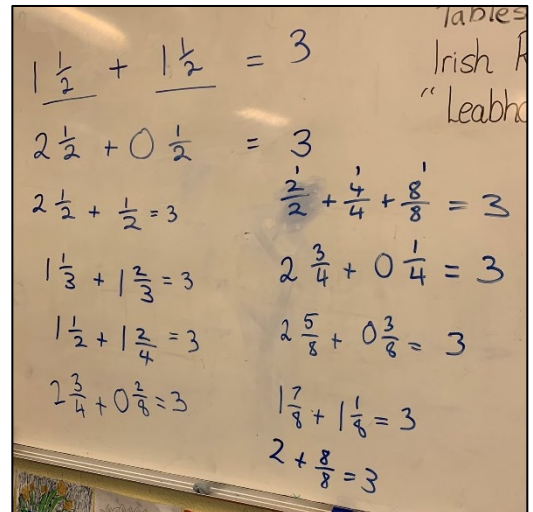 1 1/2 + 1 1/2 = 3
2 1/2 + 0 1/2 = 3
2 1/2 + 1/2 = 3
1 1/3 + 1 2/3 = 3
1 1/2 + 1 2/4 = 3
2 3/4 + 0 2/8 = 3
Tables
Irish R
" Leabha
1 1 1
2/2 + 4/4 + 8/8 = 3
2 3/4 + 0 1/4 = 3
2 5/8 + 0 3/8 = 3
1 7/8 + 1 1/8 = 3
2 + 8/8 = 3